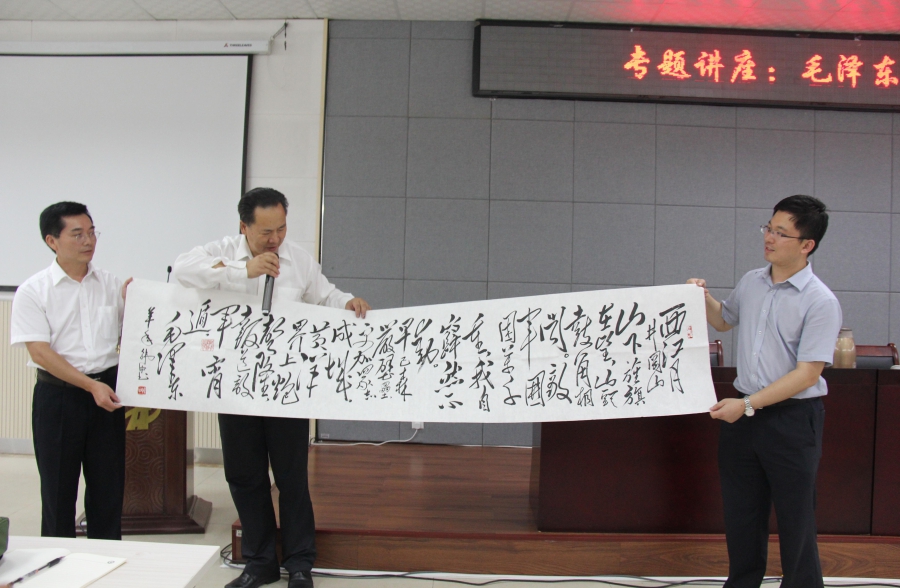 专题讲座：毛泽东
西江月
井岡山
山下旌旗
在望山头
鼓角相
闻。敌
军围
困万千
重我自
岿然不
动。
早已森
严壁垒
更加众志
成城
黄洋
界上炮
声隆
报道敌
军宵
遁
毛泽东